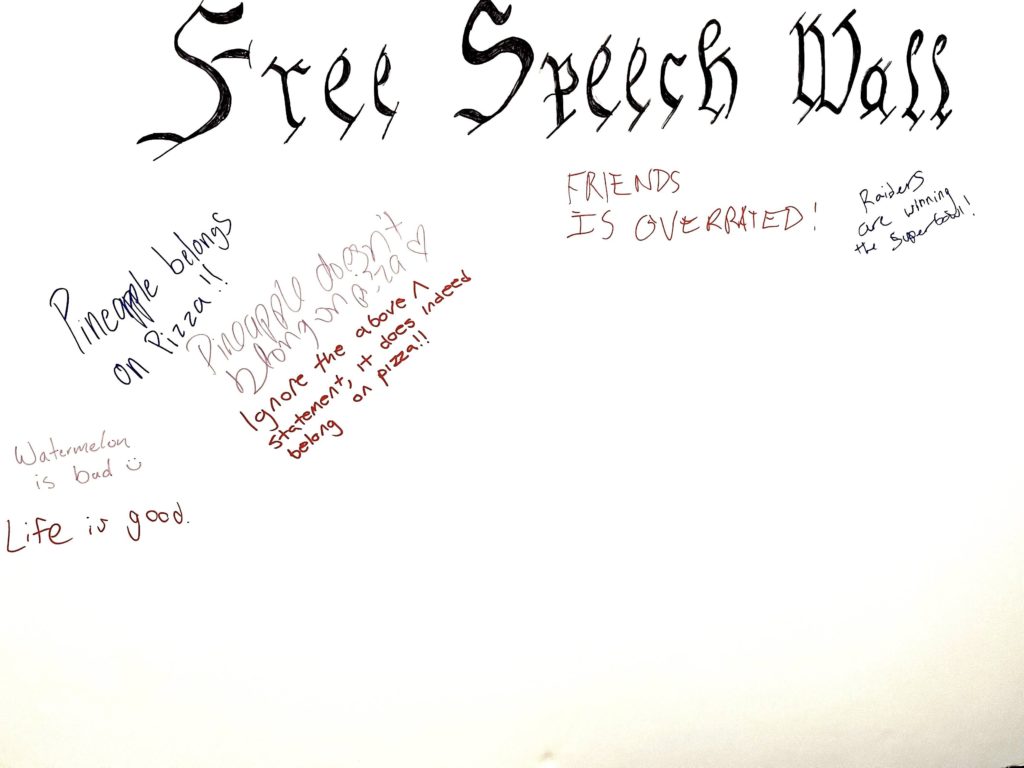 Free Speech Wall
FRIENDS
IS OVERRATED!
Raiders
are winning
the Superbowl!!
Pineapple belongs
on Pizza!!
Pineapple doesn't
belong on pizza ♡
Ignore the above ^
statement, it does indeed
belong on pizza!!
Watermelon
is bad ☺
Life is good.